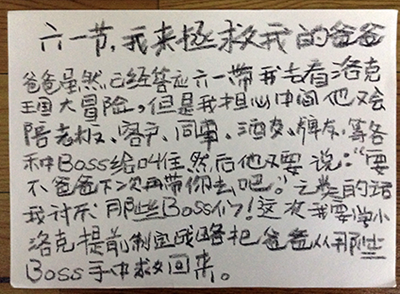 六一节,我来拯救我的爸爸
爸爸虽然已经答应六一带我去看洛克
王国大冒险。但是我担心中间他又会
陪老板、客户、同事、酒友、牌友、等各
种Boss给叫住然后他又要说:“要
不爸爸下次再带你去吧。”之类的话
我讨厌那些Boss们!这次我要学小
洛克提前制定战略把爸爸从那些
Boss手中救回来。